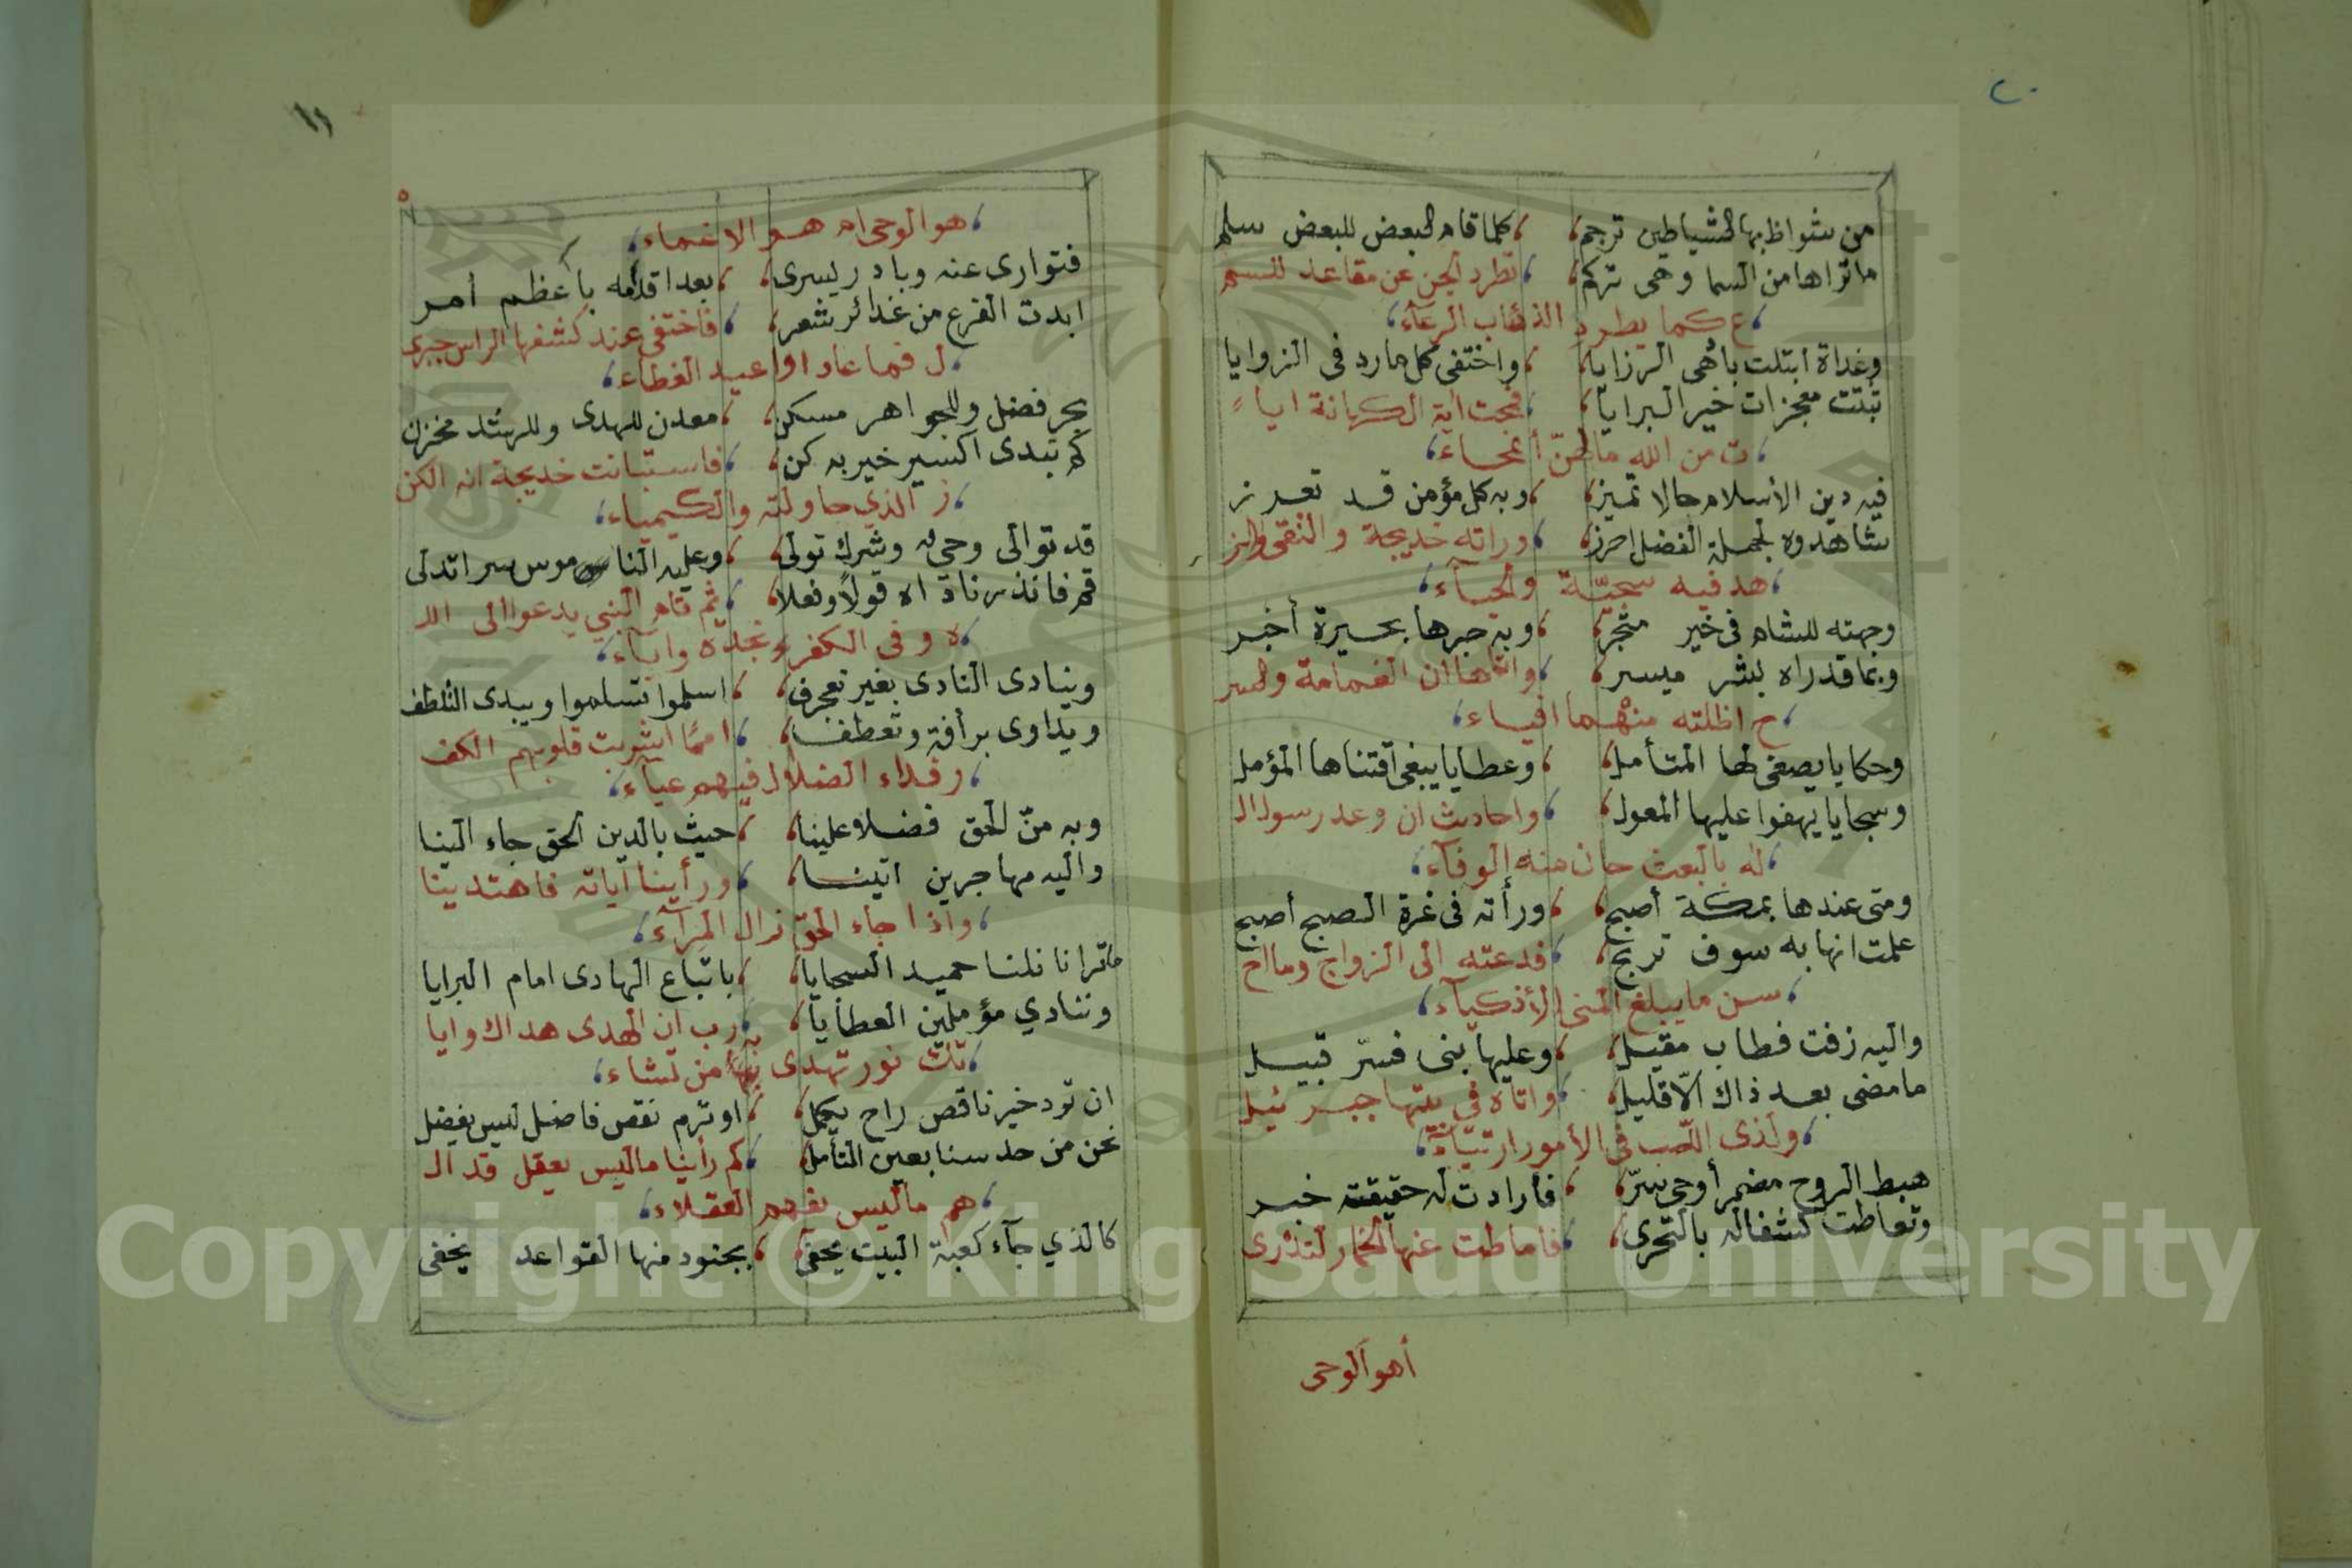 ٢٠
من شواظ بها الشياطين ترجم ، كلما قام البعض للبعض سلم
ما تراها من السما وهى تركم ، تطرد الجن عن مقاعد للسم
ع كما يطرد الذئاب الرعآء
وغداة ابتلت بأهى الرزايا ، واختفى كل مارد فى الزوايا
تبتت معجزات خير البرايا ، فمحت اية الكهانة ايا
ت من الله مالهنّ أنمحاء
فيه دين الاسلام حالا تميز ، وبه كل مؤمن قد تعزز
شاهدوه لجملة الفضل احرز ، وراته خديجة والتقى والز
هد فيه سجيّة والحيآء
وجهته للشام فى خير متجر ، وبه حبرها بحيرة أخبر
وبما قد راه بشر ميسر ، واتاها ان الغمامة والسر
ح اظلته منهما افياء
وحكايا يصغى لها المتأمل ، وعطايا يبغى اقتناها المؤمل
وسجايا يهفوا عليها المعول ، واحاديث ان وعد رسول ال
له بالبعث حان منه الوفآء
ومتى عندها بمكة أصبح ، ورأته فى غرة الصبح أصبح
علمت انها به سوف تربح ، فدعته الى الزواج وما اح
سن ما يبلغ المنى الأذكيآء
واليه زفت فطاب مقيل ، وعليها بنى فسرّ قبيل
ما مضى بعد ذاك الّا قليل ، واتاه فى بيتها جبرئيل
ولذى اللّب فى الأمور ارتيآء
هبط الروح مضمر أوحى سرّ ، فأرادت له حقيقته خبر
وتعاطت كشفا له بالتحرى ، فاماطت عنها الخمار لتدرى
أهو الوحى
١٩
هو الوحى ام هو الاغماء
فتوارى عنه وبادر يسرى ، بعد اقدامه بأعظم أمر
ابدت الفرع من غدائر شعر ، فاختفى عند كشفها الراس جبرى
ل فما عاد او اعيد الغطاء
بحر فضل وللجواهر مسكن ، معدن للهدى وللرشد مخزن
كم تبدى اكسير خير به كن ، فاستبانت خديجة انه الكن
ز الذي حاولته والكيمياء
قد توالى وحى له وشرك تولى ، وعليه الناموس سرا تدلى
قم فانذر ناداه قولاً وفعلا ، ثم قام النبي يدعوا الى الل
ه وفى الكفر نجدة واباء
وينادى النادى بغير تعجرف ، اسلموا تسلموا ويبدى التلطف
ويداوى برأفة وتعطف ، امما اشربت قلوبهم الكف
ر فداء الضلال فيهم عيآء
وبه منّ الحق فضلا علينا ، حيث بالدين الحق جاء الينا
واليه مهاجرين اتينا ، ورأينا آياته فاهتدينا
واذا جاء الحق زال المرآء
ما ترانا نلنا حميد السجايا ، باتباع الهادى امام البرايا
وننادي مؤملين العطايا ، رب ان الهدى هداك وايا
تك نور تهدى بها من تشاء
ان تود خير ناقص راح يكمل ، او ترم نقص فاضل ليس يفضل
نحن من حدسنا بعين التأمل ، كم رأينا ما ليس يعقل قد ال
هم ما ليس يفهم العقلاء
كالذي جآء كعبة البيت يخفى ، بجنود منها القواعد يخفى